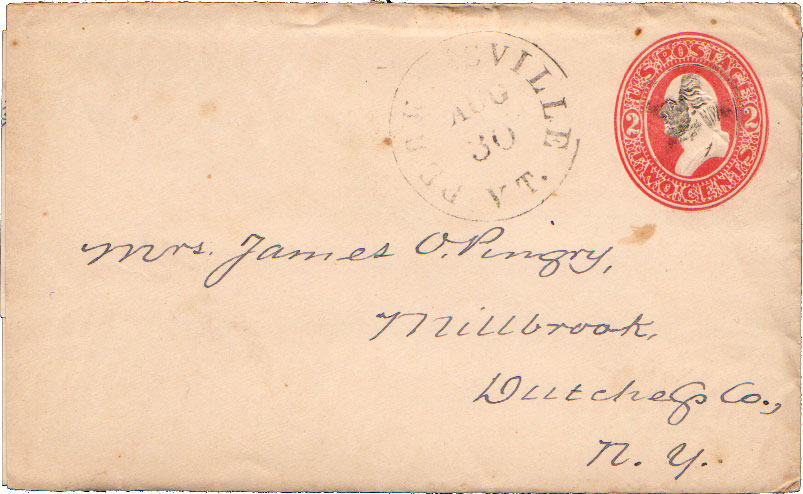 PERKINSVILLE
AUG
30
VT.
U.S. POSTAGE
2 2
TWO CENTS
Mrs. James O. Pingry,
Millbrook,
Dutchess Co.,
N. Y.